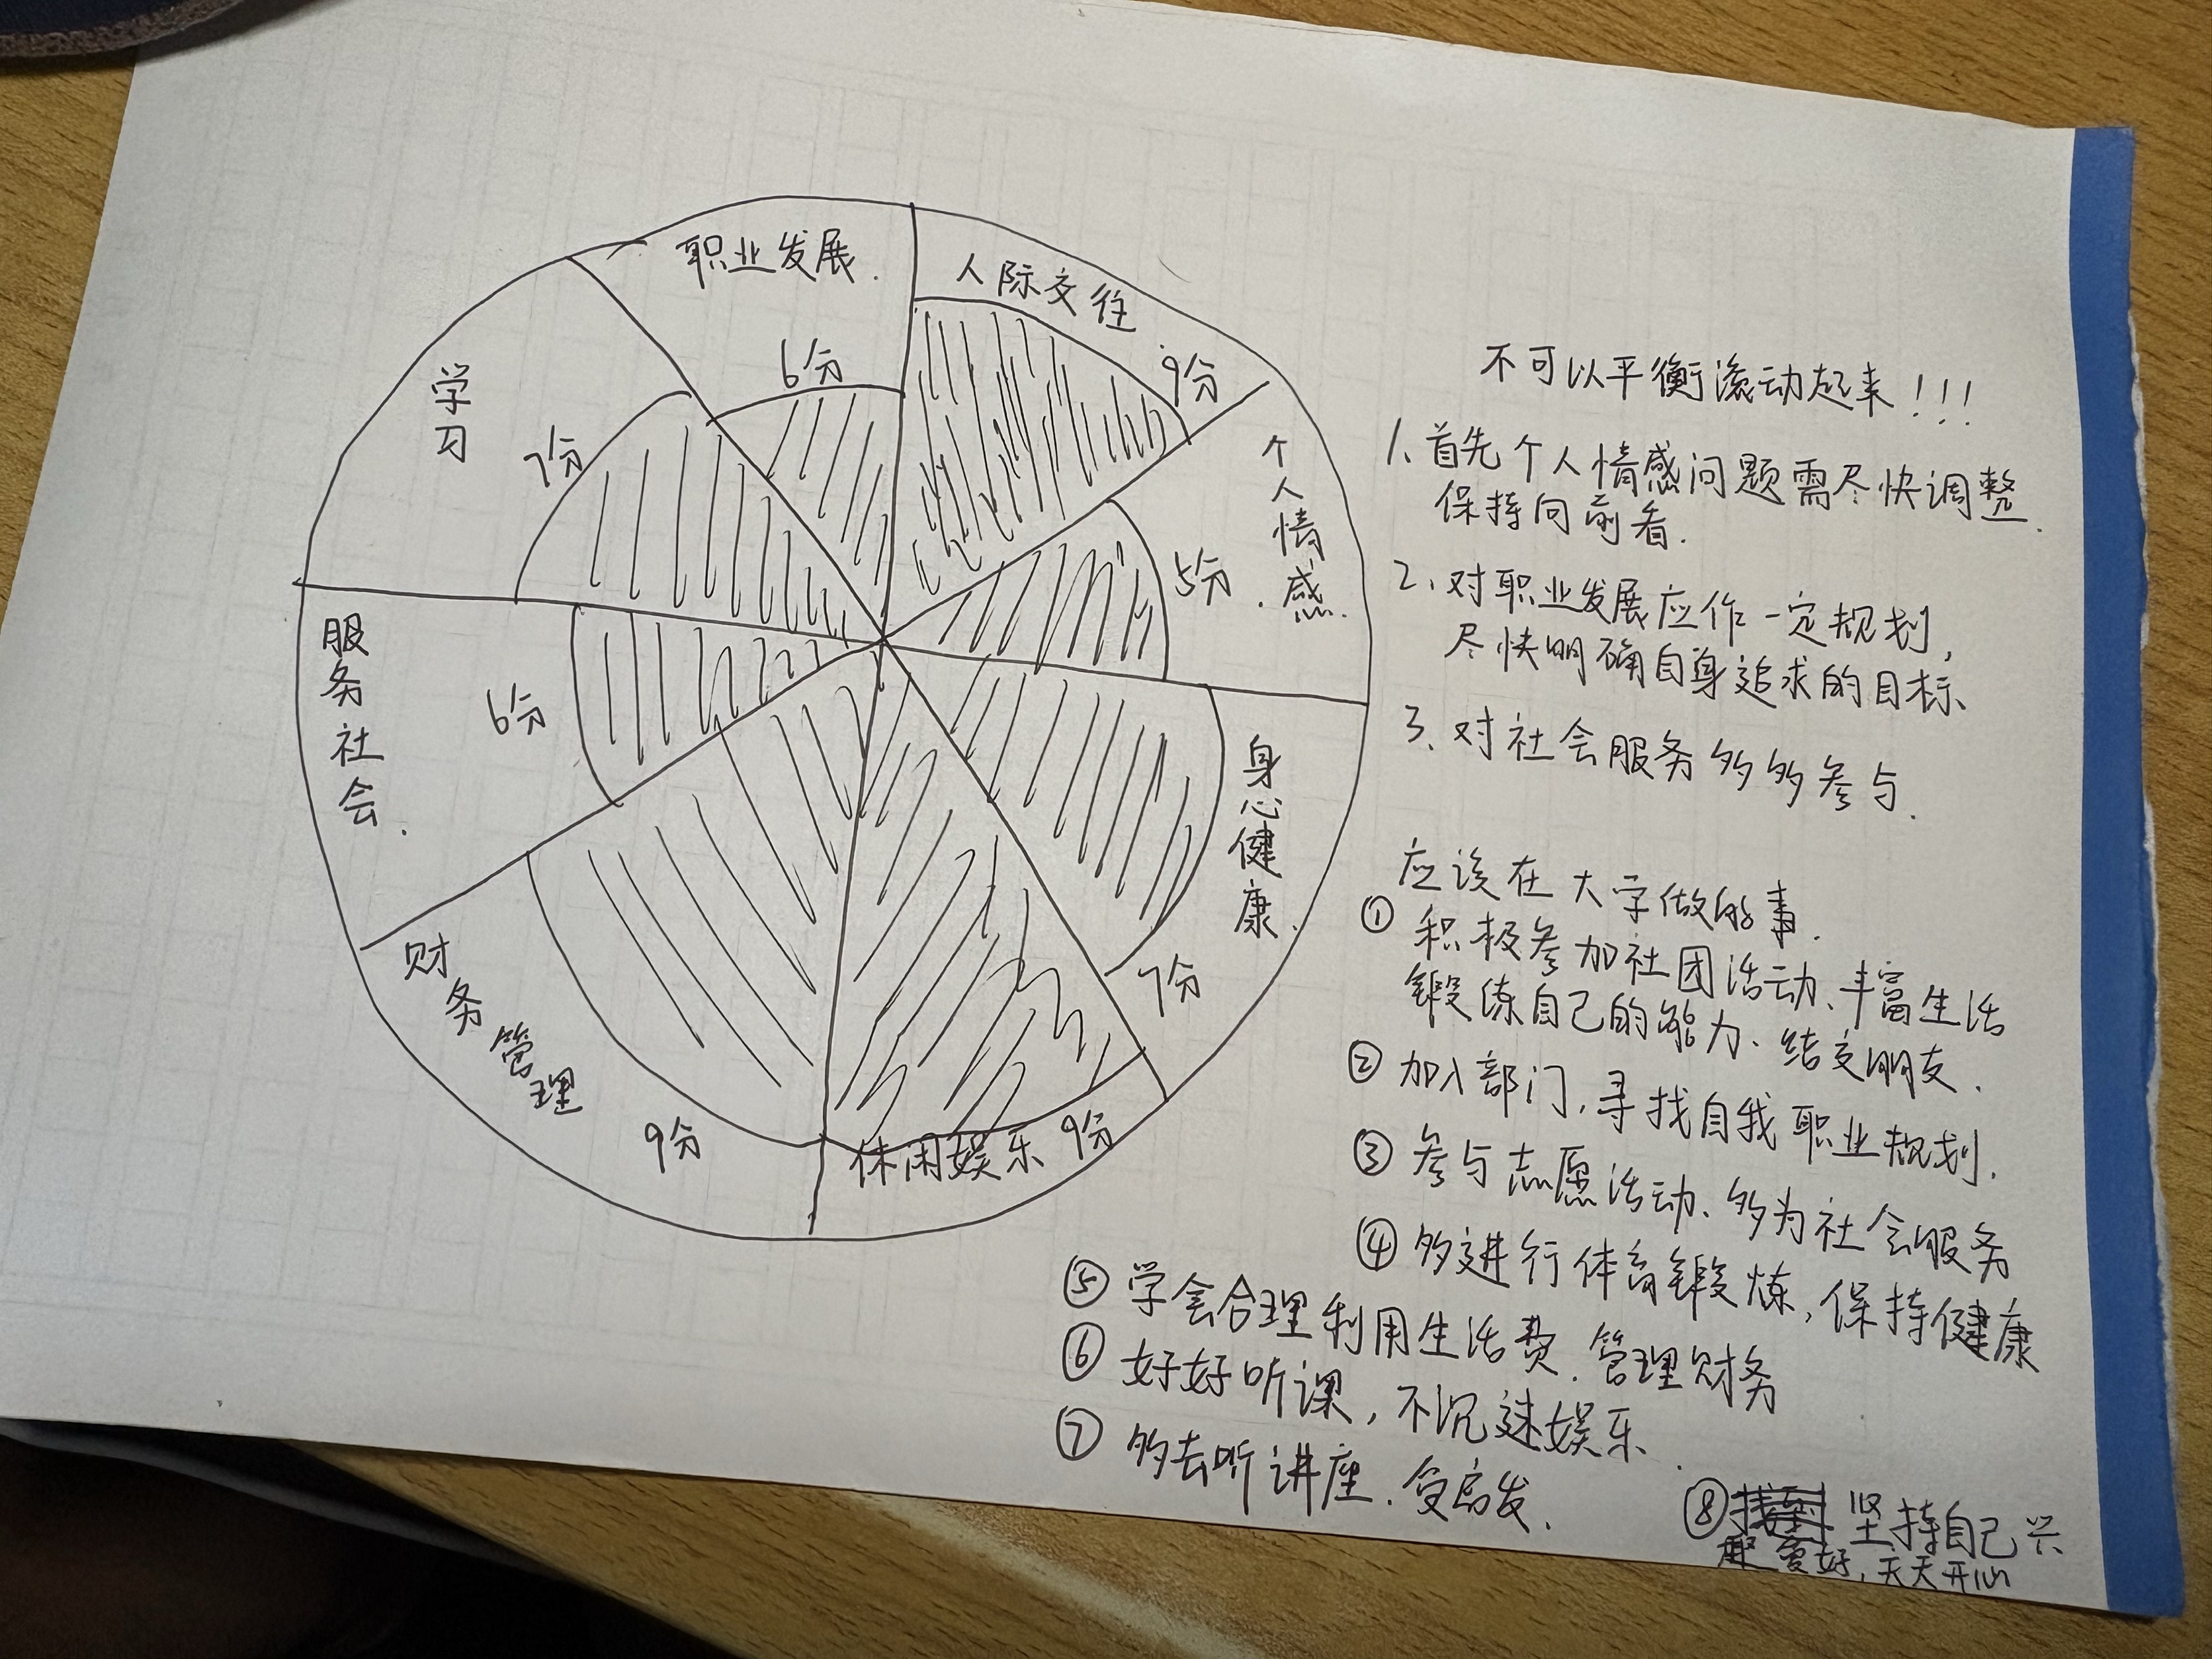 职业发展.
6分
人际交往
9分
个人情感.
5分.
身心健康.
7分
休闲娱乐 9分
财务管理
9分
服务社会.
6分
学习
7分
不可以平衡滚动起来!!!
1. 首先个人情感问题需尽快调整.
保持向前看.
2. 对职业发展应作一定规划,
尽快明确自身追求的目标、
3. 对社会服务多多参与.
应该在大学做的事.
① 积极参加社团活动、丰富生活
锻炼自己的能力、结交朋友.
② 加入部门,寻找自我职业规划.
③ 参与志愿活动、多为社会服务
④ 多进行体育锻炼,保持健康
⑤ 学会合理利用生活费.管理财务
⑥ 好好听课,不沉迷娱乐.
⑦ 多去听讲座.受启发.
⑧ 坚持自己兴
趣爱好,天天开心